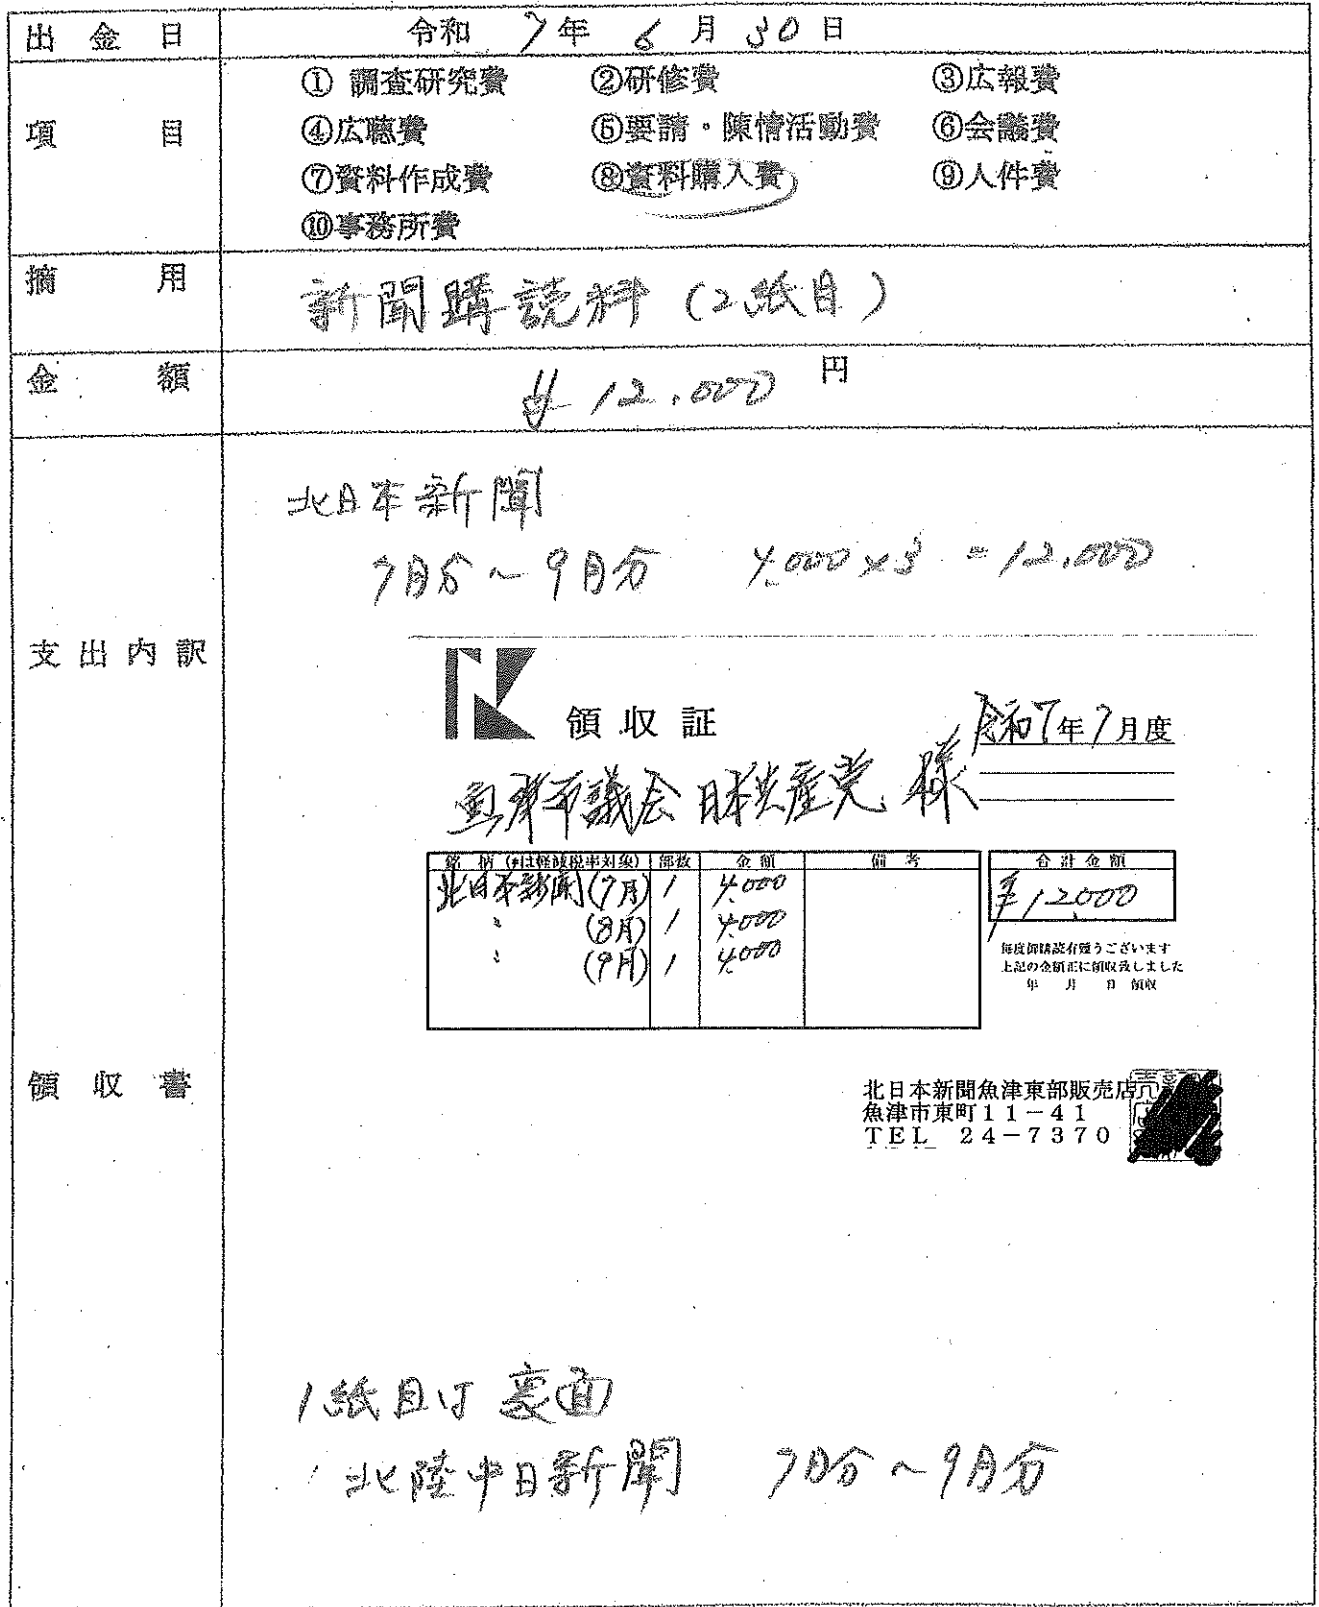 出金日 令和 7年 6月30日
項目 ① 調査研究費 ②研修費 ③広報費
④広聴費 ⑤要請・陳情活動費 ⑥会議費
⑦資料作成費 ⑧資料購入費 ⑨人件費
⑩事務所費
摘用 新聞購読料(2紙目)
金額 ¥12,000 円
北日本新聞
7月分~9月分 4,000×3=12,000
支出内訳
領収証 令和7年7月度
魚津市議会 日本共産党 様
銘柄(*は軽減税率対象) 部数 金額 備考 合計金額
北日本新聞(7月) 1 4,000 ¥12,000
〃 (8月) 1 4,000
〃 (9月) 1 4,000
毎度御購読有難うございます
上記の金額正に領収致しました
年 月 日 領収
領収書
北日本新聞魚津東部販売店
魚津市東町11-41
TEL 24-7370
1紙目は裏面
北陸中日新聞 7月分~9月分